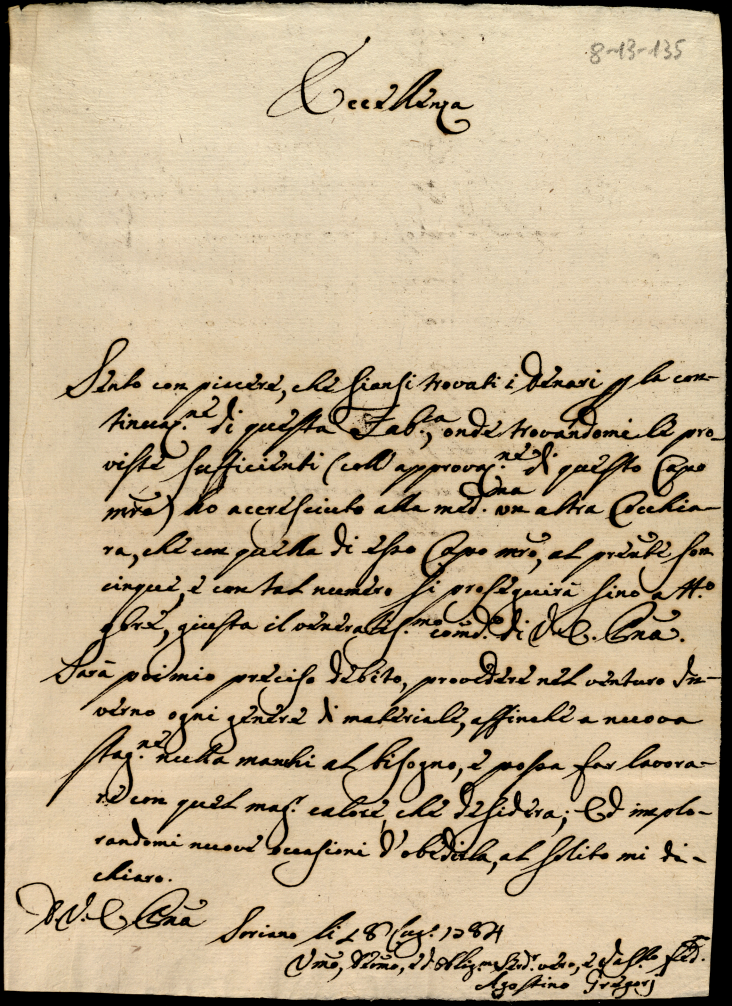 8-13-135
Eccellenza
Sento con piacere, che siansi trovati i denari p la con-
tinuaz.ne di questa Fab.a, onde trovandomi le pro
viste sufficienti (coll approvaz.ne di questo Capo
mro) ho accresciuto alla med.ma un altra Cocchia-
ra, che con quella di esso Capo mro, al preñte son
cinque, e con tal numero si proseguirà sino a tt.o
9bre, giusta il veneratis.mo comd.o di V. E. Ẽna.
Sarà poi mio preciso debito, provedere nel venturo In-
verno ogni genere di materiale, affinche a nuova
stag.ne nulla manchi al bisogno, e possa far lavora-
re con quel mag.r calore, che desidera; Ed implo-
randomi nuove occasioni d'obedirla, al solito mi di-
chiaro.
D. V. E. Ẽna
Soriano li 18 Lug. 1784
Umo, Devmo, ed Obligmo Serd.r vero, e
Agostino Gregorj